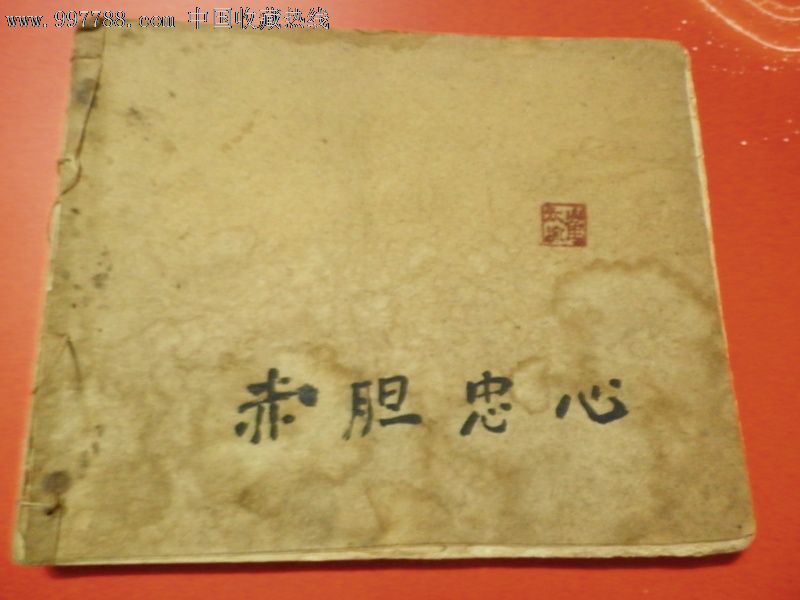 www.997788.com 中国收藏热线
赤胆忠心